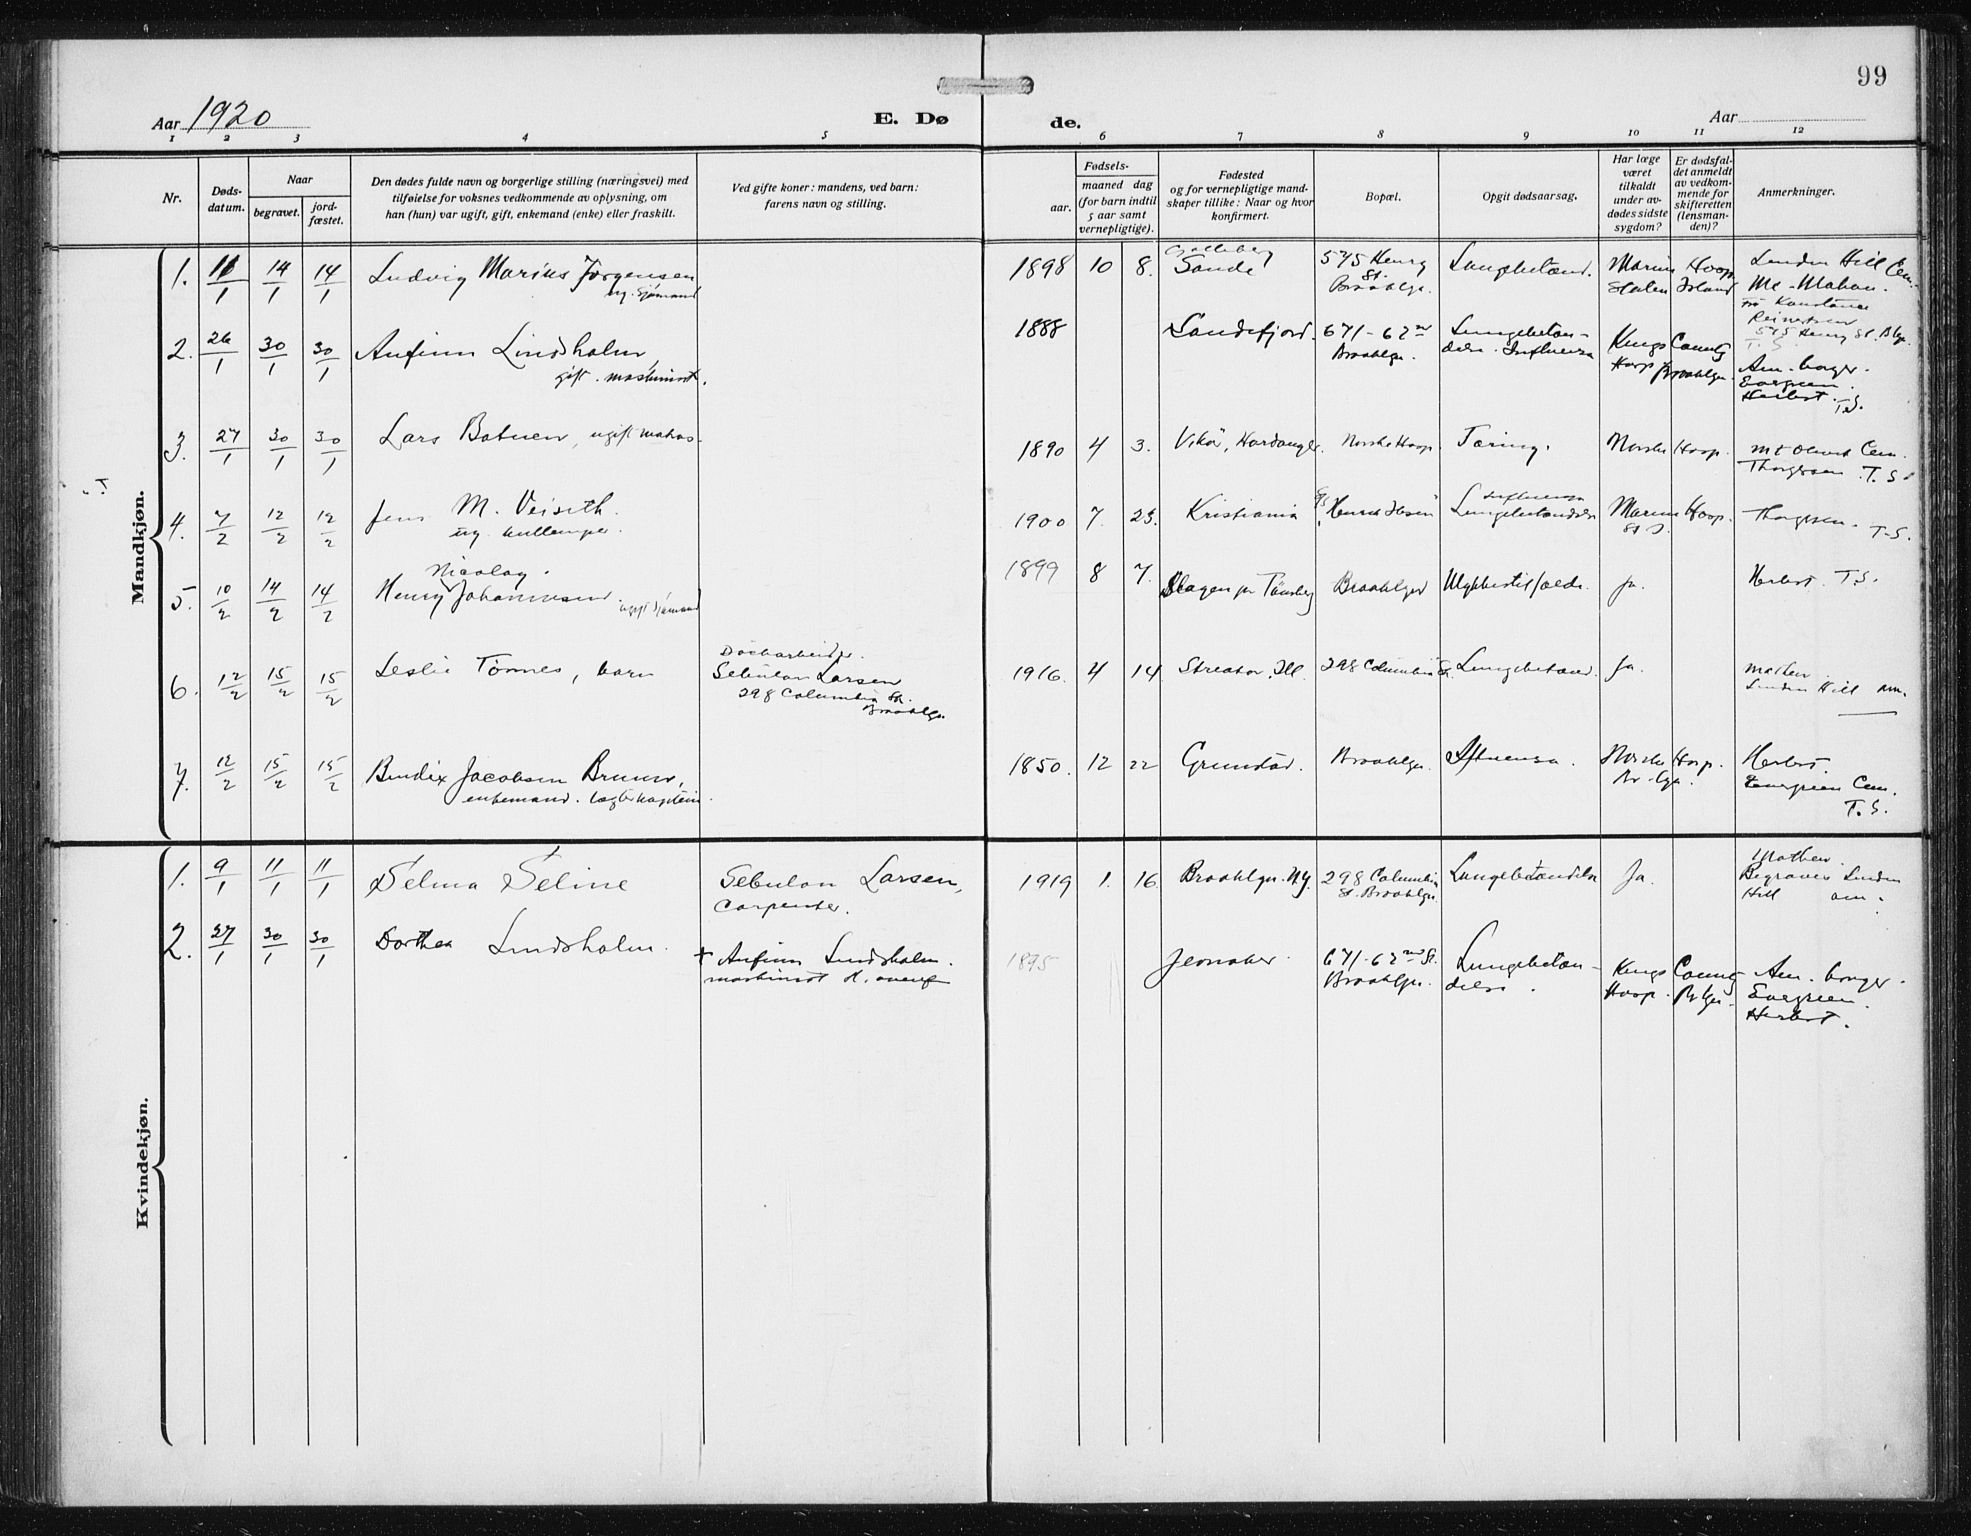 99
Aar 1920
E. Dø
de.
Aar
1 2 3 4 5 6 7 8 9 10 11 12
Nr.
Døds-
datum.
Naar
begravet.
jord-
fæstet.
Den dødes fulde navn og borgerlige stilling (næringsvei) med
tilføielse for voksnes vedkommende av oplysning, om
han (hun) var ugift, gift, enkemand (enke) eller fraskilt.
Ved gifte koner: mandens, ved barn:
farens navn og stilling.
Fødsels-
aar.
maaned dag
(for barn indtil
5 aar samt
vernepligtige).
Fødested
og for vernepligtige mand-
skaper tillike: Naar og hvor
konfirmert.
Bopæl.
Opgit dødsaarsag.
Har læge
været
tilkaldt
under av-
dødes sidste
sygdom?
Er dødsfal-
det anmeldt
av vedkom-
mende for
skifteretten
(lensman-
den)?
Anmerkninger.
Mandkjøn.
1. 11/1 14/1 14/1 Ludvig Marius Jørgensen
ug. Sjømand
1898 10 8. Sande
575 Henry
St.
Brooklyn.
Lungebetænd.
Marine Hosp.
Staten Island
Linden Hill Cem.
Mc-Mahon.
Reinertsen
575 Henry St. Bkn.
T. S.
2. 26/1 30/1 30/1 Anfinn Lindsholm,
gift. maskinist.
1888 Sandefjord. 671-62nd
Brooklyn.
Lungebetæn-
delse. Influensa
Kings County
Hosp. Brooklyn.
Am. borger.
Evergreen.
Herbst. T.S.
3. 27/1 30/1 30/1 Lars Botnen, ugift matros-
1890 4 3. Vikør, Hardanger. Norske Hosp. Tæring. Norske Hosp. Mt Olivet Cem.
Thorgersen. T. S.
4. 7/2 12/2 12/2 Jens M. Veiseth.
ug. kullemper.
1900 7. 23. Kristiania Henrik Ibsen
Influensa
Lungebetændelse
Marine Hosp.
St. I.
Thorgersen. T-S.
5. 10/2 14/2 14/2 Henry Nicolay. Johannesen. ugift sjømand
1899 8 7. Slagen pr Tønsberg Brooklyn Ulykkestilfælde. Ja. Herbst. T.S.
6. 12/2 15/2 15/2 Leslie Tønnes, barn
Dockarbeider.
Sebulon Larsen
298 Columbia St.
Brooklyn.
1916. 4 14 Streator, Ill. 298 Columbia St. Lungebetænd. Ja. Mathew.
Linden Hill
7. 12/2 15/2 15/2 Bendix Jacobsen Bruun,
enkemand.
1850. 12 22 Grimstad. Brooklyn. Influensa. Norske Hosp.
Herbst.
Evergreen Cem.
T. S.
Kvindekjøn.
1. 9/1 11/1 11/1 Selma Seline
Sebulon Larsen,
Carpenter.
1919 1. 16 Brooklyn. N.Y. 298 Columbia
St. Brooklyn.
Lungebetændelse Ja. Mathew.
Begravet Linden
Hill
2. 27/1 30/1 30/1 Dorthea Lindsholm.
+ Anfinn Lindsholm.
maskinist
1895 671-62nd St.
Brooklyn.
Lungebetæn-
delse.
Kings County
Hosp. Bklyn.
Am. borger.
Evergreen.
Herbst.